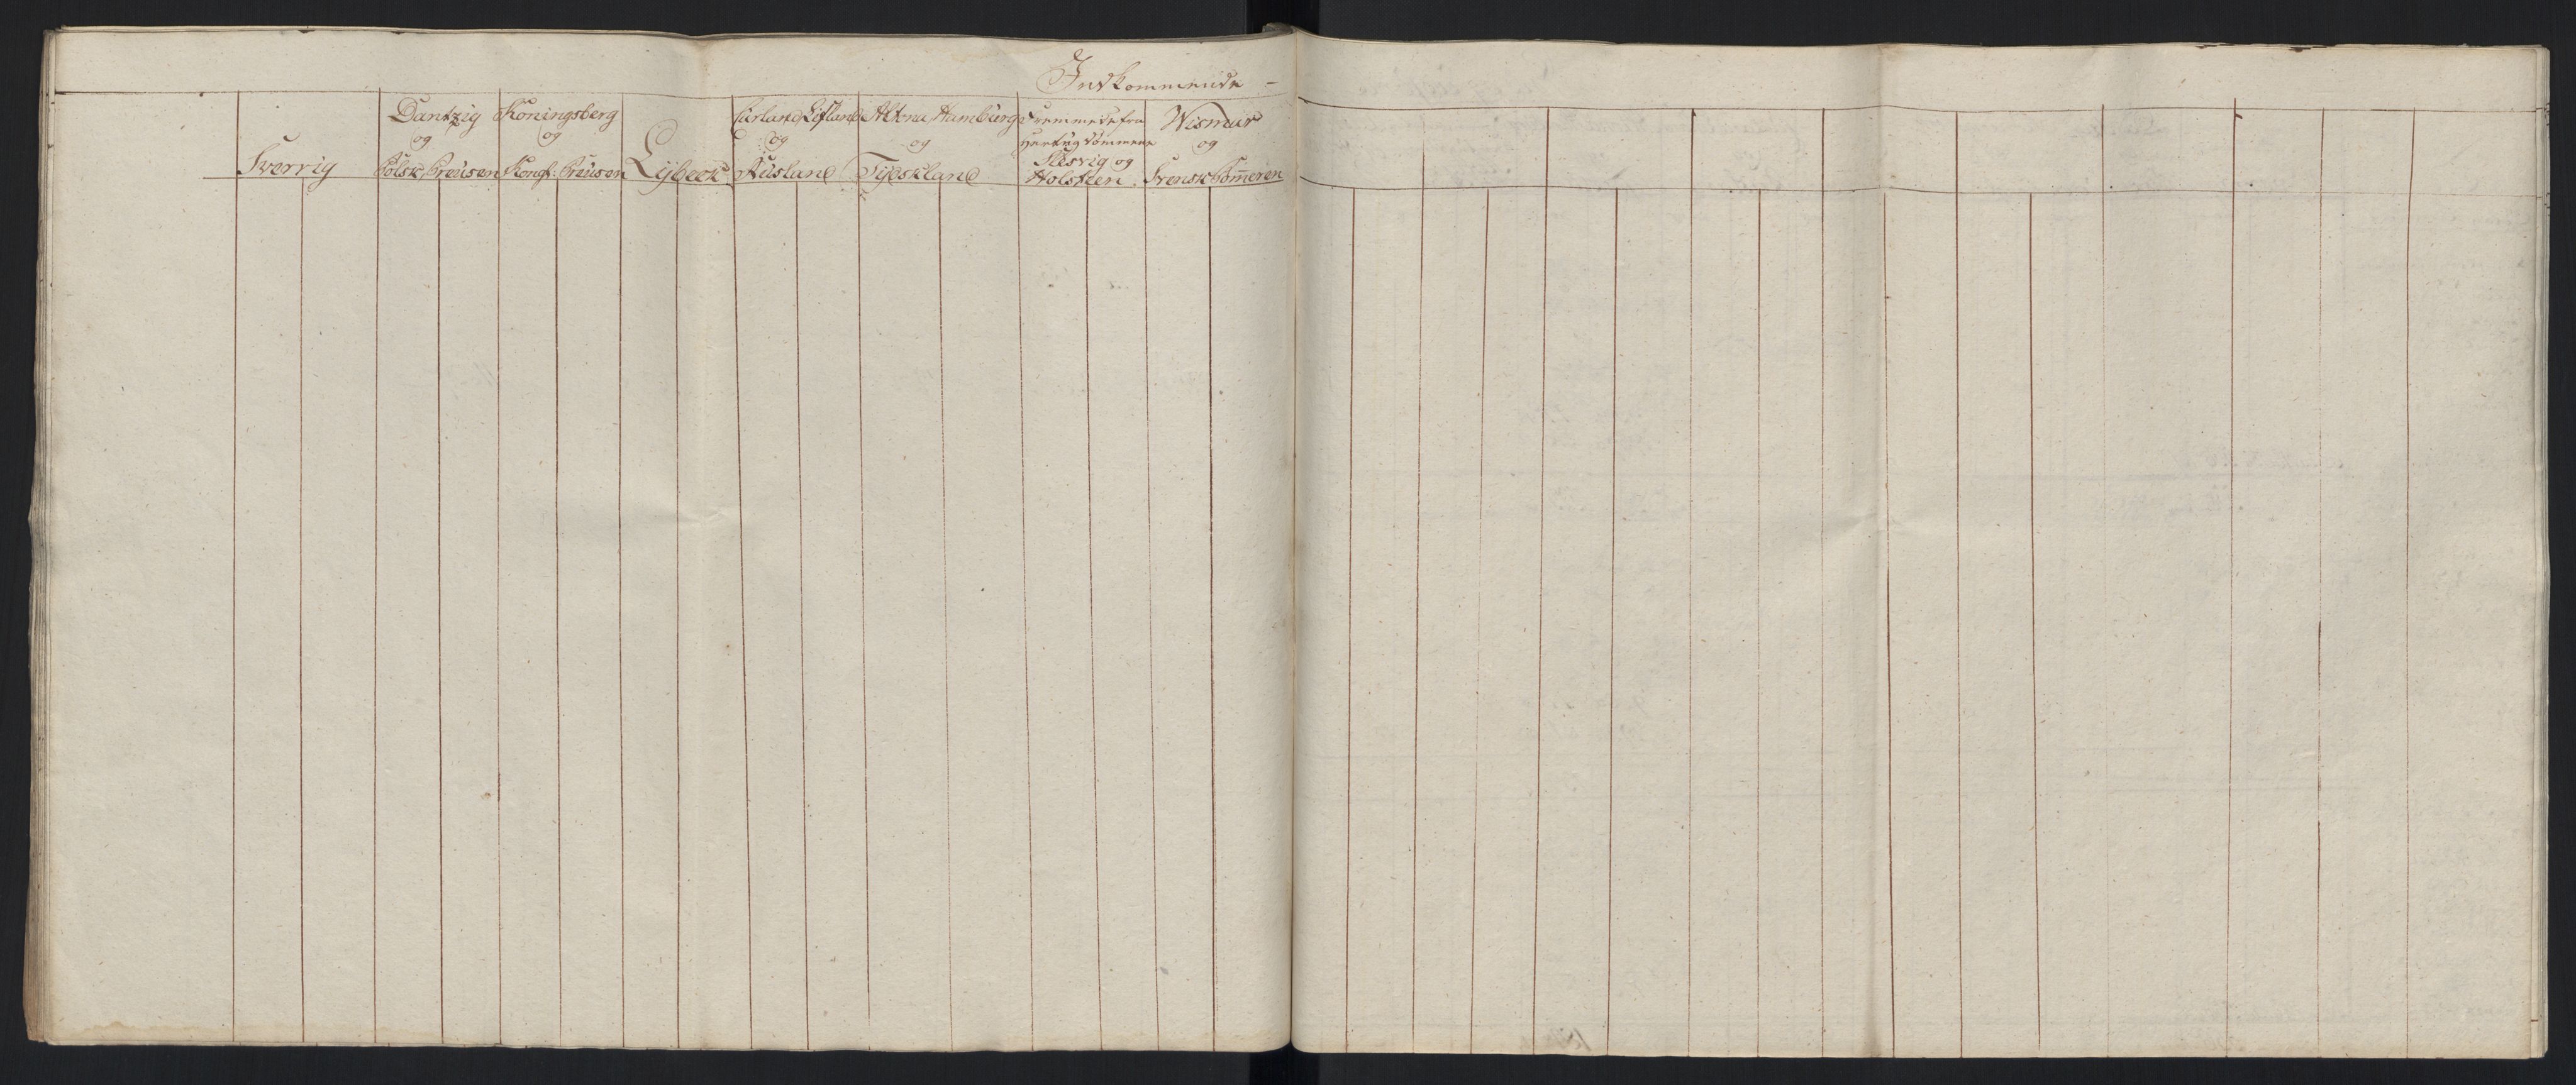 Indkommende
Sverrig
Dantzig
og
Polsk Preusen
Koningsberg
og
Kongl: Preusen
Lybeck
Curland Lifland
og
Rusland
Altona Hamburg
og
Tydskland
Fremmede fra
Hertugdømmene
Slesvig og
Holsteen
Wismar
og
Svensk Pom̅eren